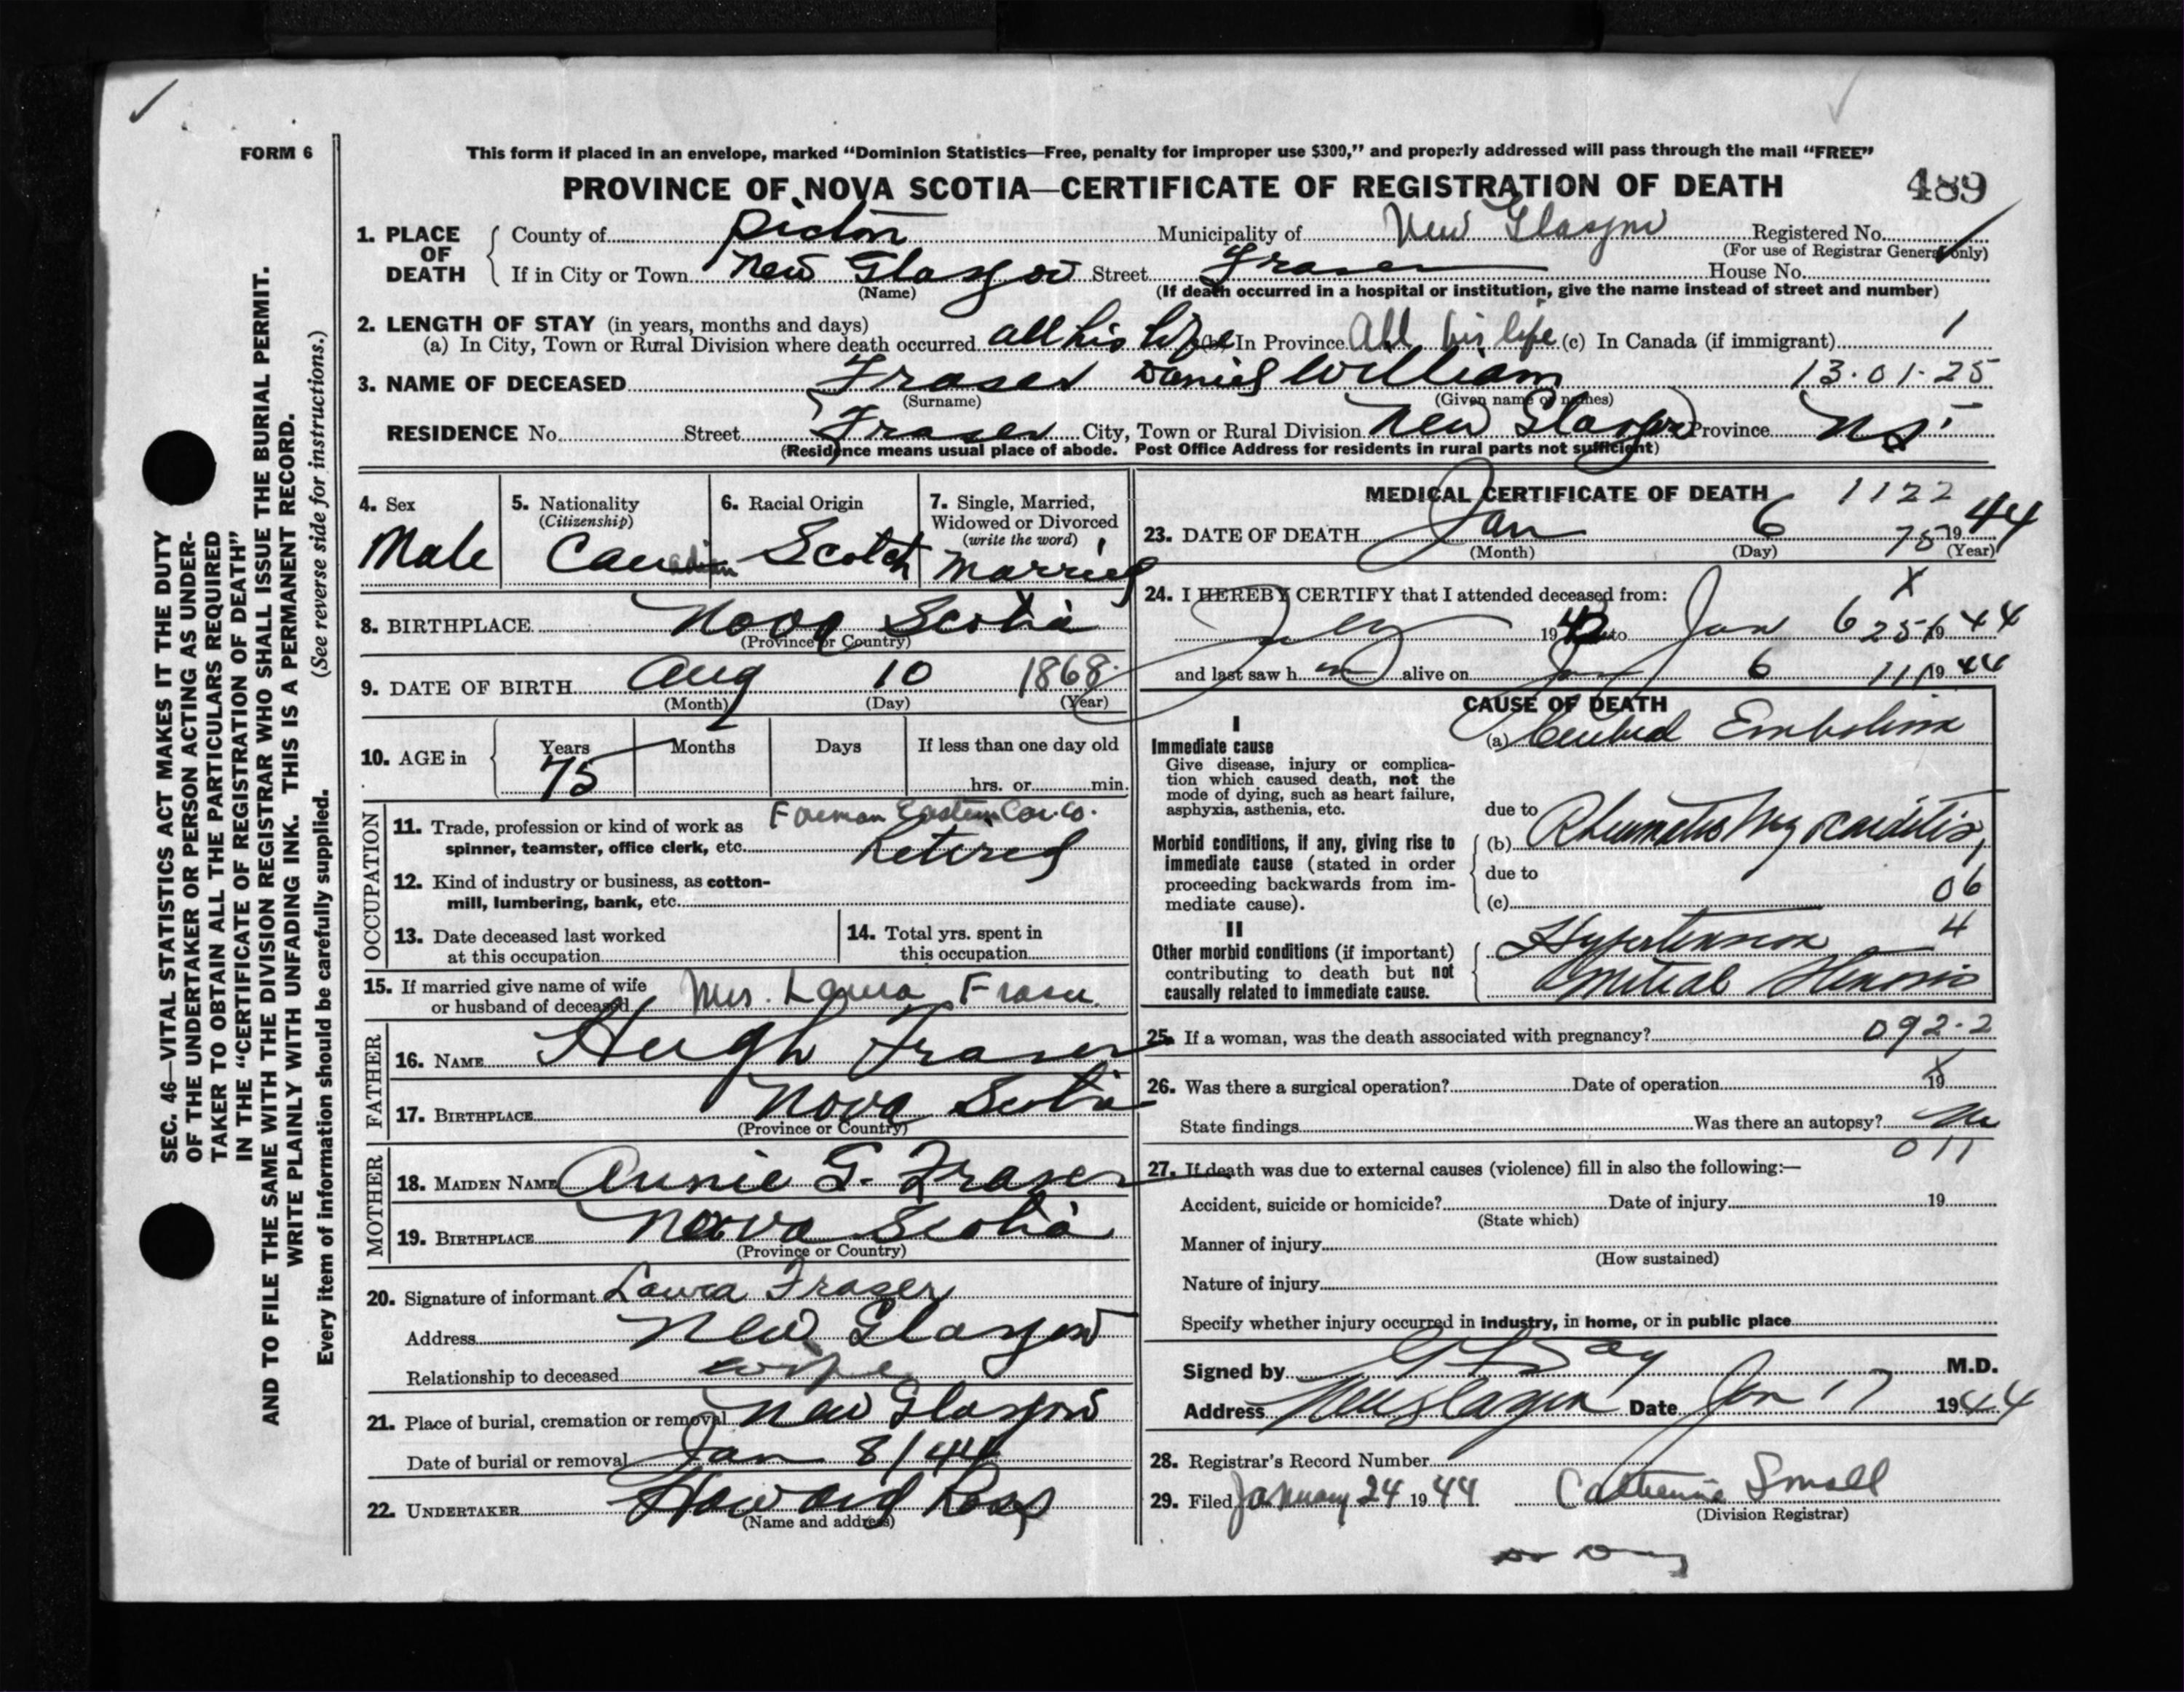 FORM 6
This form if placed in an envelope, marked “Dominion Statistics—Free, penalty for improper use $300,” and properly addressed will pass through the mail “FREE”
PROVINCE OF NOVA SCOTIA—CERTIFICATE OF REGISTRATION OF DEATH
489
1. PLACE OF DEATH
County of Pictou Municipality of New Glasgow Registered No.
(For use of Registrar General only)
If in City or Town New Glasgow Street Fraser House No.
(Name)
(If death occurred in a hospital or institution, give the name instead of street and number)
2. LENGTH OF STAY (in years, months and days)
(a) In City, Town or Rural Division where death occurred all his life (b) In Province All his life (c) In Canada (if immigrant) 1
3. NAME OF DECEASED Fraser Daniel William 13-01-25
(Surname) (Given name or names)
RESIDENCE No. Street Fraser City, Town or Rural Division New Glasgow Province N.S.
(Residence means usual place of abode. Post Office Address for residents in rural parts not sufficient)
4. Sex
Male
5. Nationality
(Citizenship)
Canadian
6. Racial Origin
Scotch
7. Single, Married,
Widowed or Divorced
(write the word)
Married
8. BIRTHPLACE Nova Scotia
(Province or Country)
9. DATE OF BIRTH Aug 10 1868
(Month) (Day) (Year)
10. AGE in
Years Months Days If less than one day old
75 hrs. or min.
OCCUPATION
Foreman Eastern Car Co.
11. Trade, profession or kind of work as
spinner, teamster, office clerk, etc. Retired
12. Kind of industry or business, as cotton-
mill, lumbering, bank, etc.
13. Date deceased last worked
at this occupation
14. Total yrs. spent in
this occupation
15. If married give name of wife
or husband of deceased Mrs. Laura Fraser
FATHER
16. NAME Hugh Fraser
17. BIRTHPLACE Nova Scotia
(Province or Country)
MOTHER
18. MAIDEN NAME Annie G. Fraser
19. BIRTHPLACE Nova Scotia
(Province or Country)
20. Signature of informant Laura Fraser
Address New Glasgow
Relationship to deceased wife
21. Place of burial, cremation or removal New Glasgow
Date of burial or removal Jan 8/44
22. UNDERTAKER Howard Ross
(Name and address)
MEDICAL CERTIFICATE OF DEATH 1122
23. DATE OF DEATH Jan 6 75 1944
(Month) (Day) (Year)
24. I HEREBY CERTIFY that I attended deceased from: X
July 19 to Jan 6 251 1944
and last saw h m alive on Jan 6 111 1944
CAUSE OF DEATH
I
Immediate cause
Give disease, injury or complica-
tion which caused death, not the
mode of dying, such as heart failure,
asphyxia, asthenia, etc.
(a) Cerebral Embolism
due to
Morbid conditions, if any, giving rise to
immediate cause (stated in order
proceeding backwards from im-
mediate cause).
(b) Rheumatic Myocarditis
due to
(c) 06
II
Other morbid conditions (if important)
contributing to death but not
causally related to immediate cause.
Hypertension 4
Mitral Stenosis
25. If a woman, was the death associated with pregnancy? 092.2
26. Was there a surgical operation? Date of operation 19 X
State findings Was there an autopsy? No
011
27. If death was due to external causes (violence) fill in also the following:—
Accident, suicide or homicide? Date of injury 19
(State which)
Manner of injury
(How sustained)
Nature of injury
Specify whether injury occurred in industry, in home, or in public place
Signed by Day M.D.
Address New Glasgow Date Jan 17 1944
28. Registrar's Record Number
29. Filed January 24 1944 Catherine Small
(Division Registrar)
Dr Day
SEC. 46—VITAL STATISTICS ACT MAKES IT THE DUTY
OF THE UNDERTAKER OR PERSON ACTING AS UNDER-
TAKER TO OBTAIN ALL THE PARTICULARS REQUIRED
IN THE “CERTIFICATE OF REGISTRATION OF DEATH”
AND TO FILE THE SAME WITH THE DIVISION REGISTRAR WHO SHALL ISSUE THE BURIAL PERMIT.
WRITE PLAINLY WITH UNFADING INK. THIS IS A PERMANENT RECORD.
Every item of information should be carefully supplied. (See reverse side for instructions.)